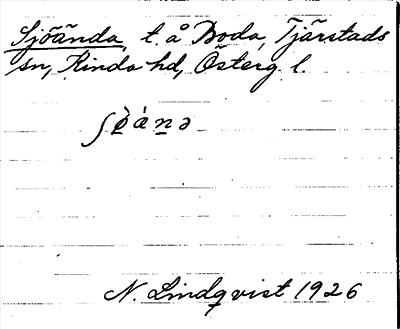 Sjöända, t. å Boda, Tjärstads
sn, Kinda hd, Österg. l.
N. Lindqvist 1926